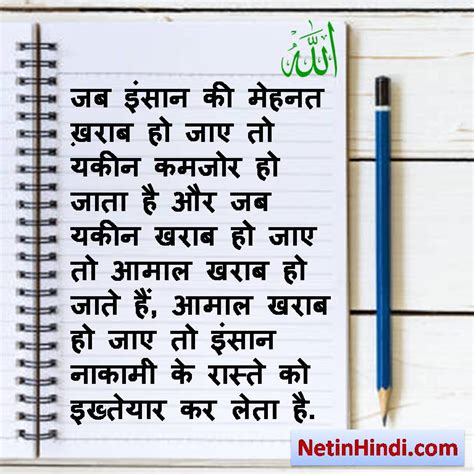 الله
जब इंसान की मेहनत
ख़राब हो जाए तो
यकीन कमजोर हो
जाता है और जब
यकीन खराब हो जाए
तो आमाल खराब हो
जाते हैं, आमाल खराब
हो जाए तो इंसान
नाकामी के रास्ते को
इख्तेयार कर लेता है.
NetinHindi.com